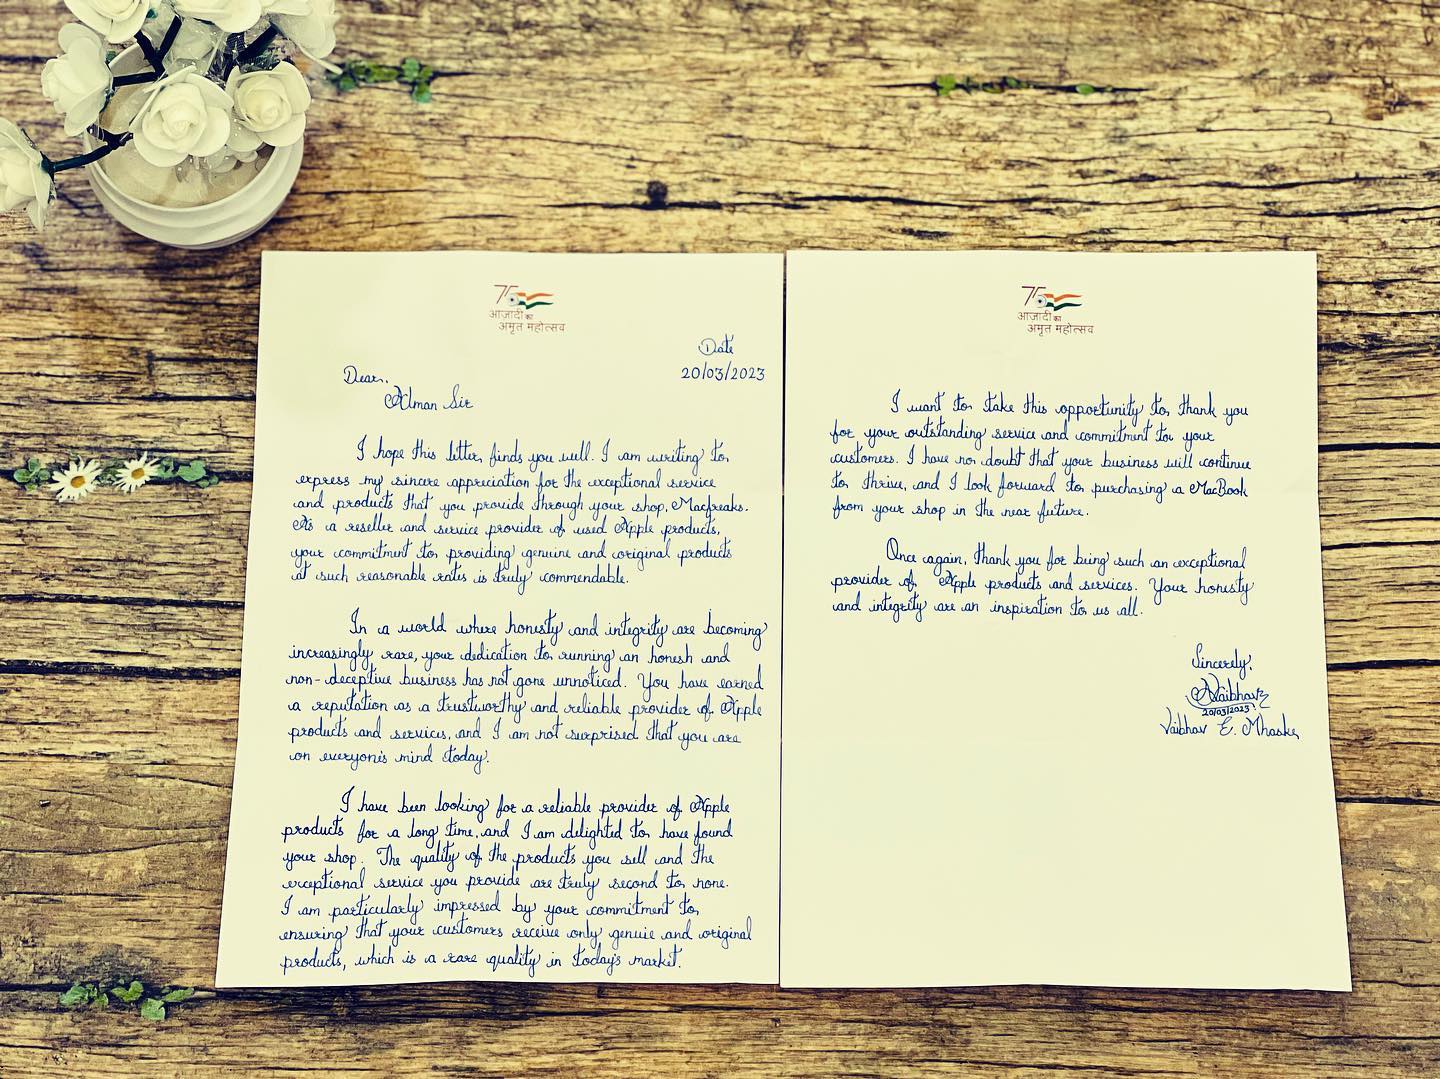 75
आज़ादी का
अमृत महोत्सव
Date
20/03/2023
Dear,
Alman Sir
I hope this letter finds you well. I am writing to
express my sincere appreciation for the exceptional service
and products that you provide through your shop, Macfreaks.
As a reseller and service provider of used Apple products,
your commitment to providing genuine and original products
at such reasonable rates is truly commendable.
In a world where honesty and integrity are becoming
increasingly rare, your dedication to running an honesh and
non-deceptive business has not gone unnoticed. You have earned
a reputation as a trustworthy and reliable provider of Apple
products and services, and I am not surprised that you are
on everyone's mind today.
I have been looking for a reliable provider of Apple
products for a long time, and I am delighted to have found
your shop. The quality of the products you sell and the
exceptional service you provide are truly second to none.
I am particularly impressed by your commitment to
ensuring that your customers receive only genuie and original
products, which is a rare quality in today's market.
75
आज़ादी का
अमृत महोत्सव
I want to take this opportunity to thank you
for your outstanding service and commitment to your
customers. I have no doubt that your business will continue
to thrive, and I look forward to purchasing a MacBook
from your shop in the near future.
Once again, thank you for being such an exceptional
provider of Apple products and services. Your honesty
and integrity are an inspiration to us all.
Sincerely,
Vaibhav
20/03/2023
Vaibhav E. Mhaske